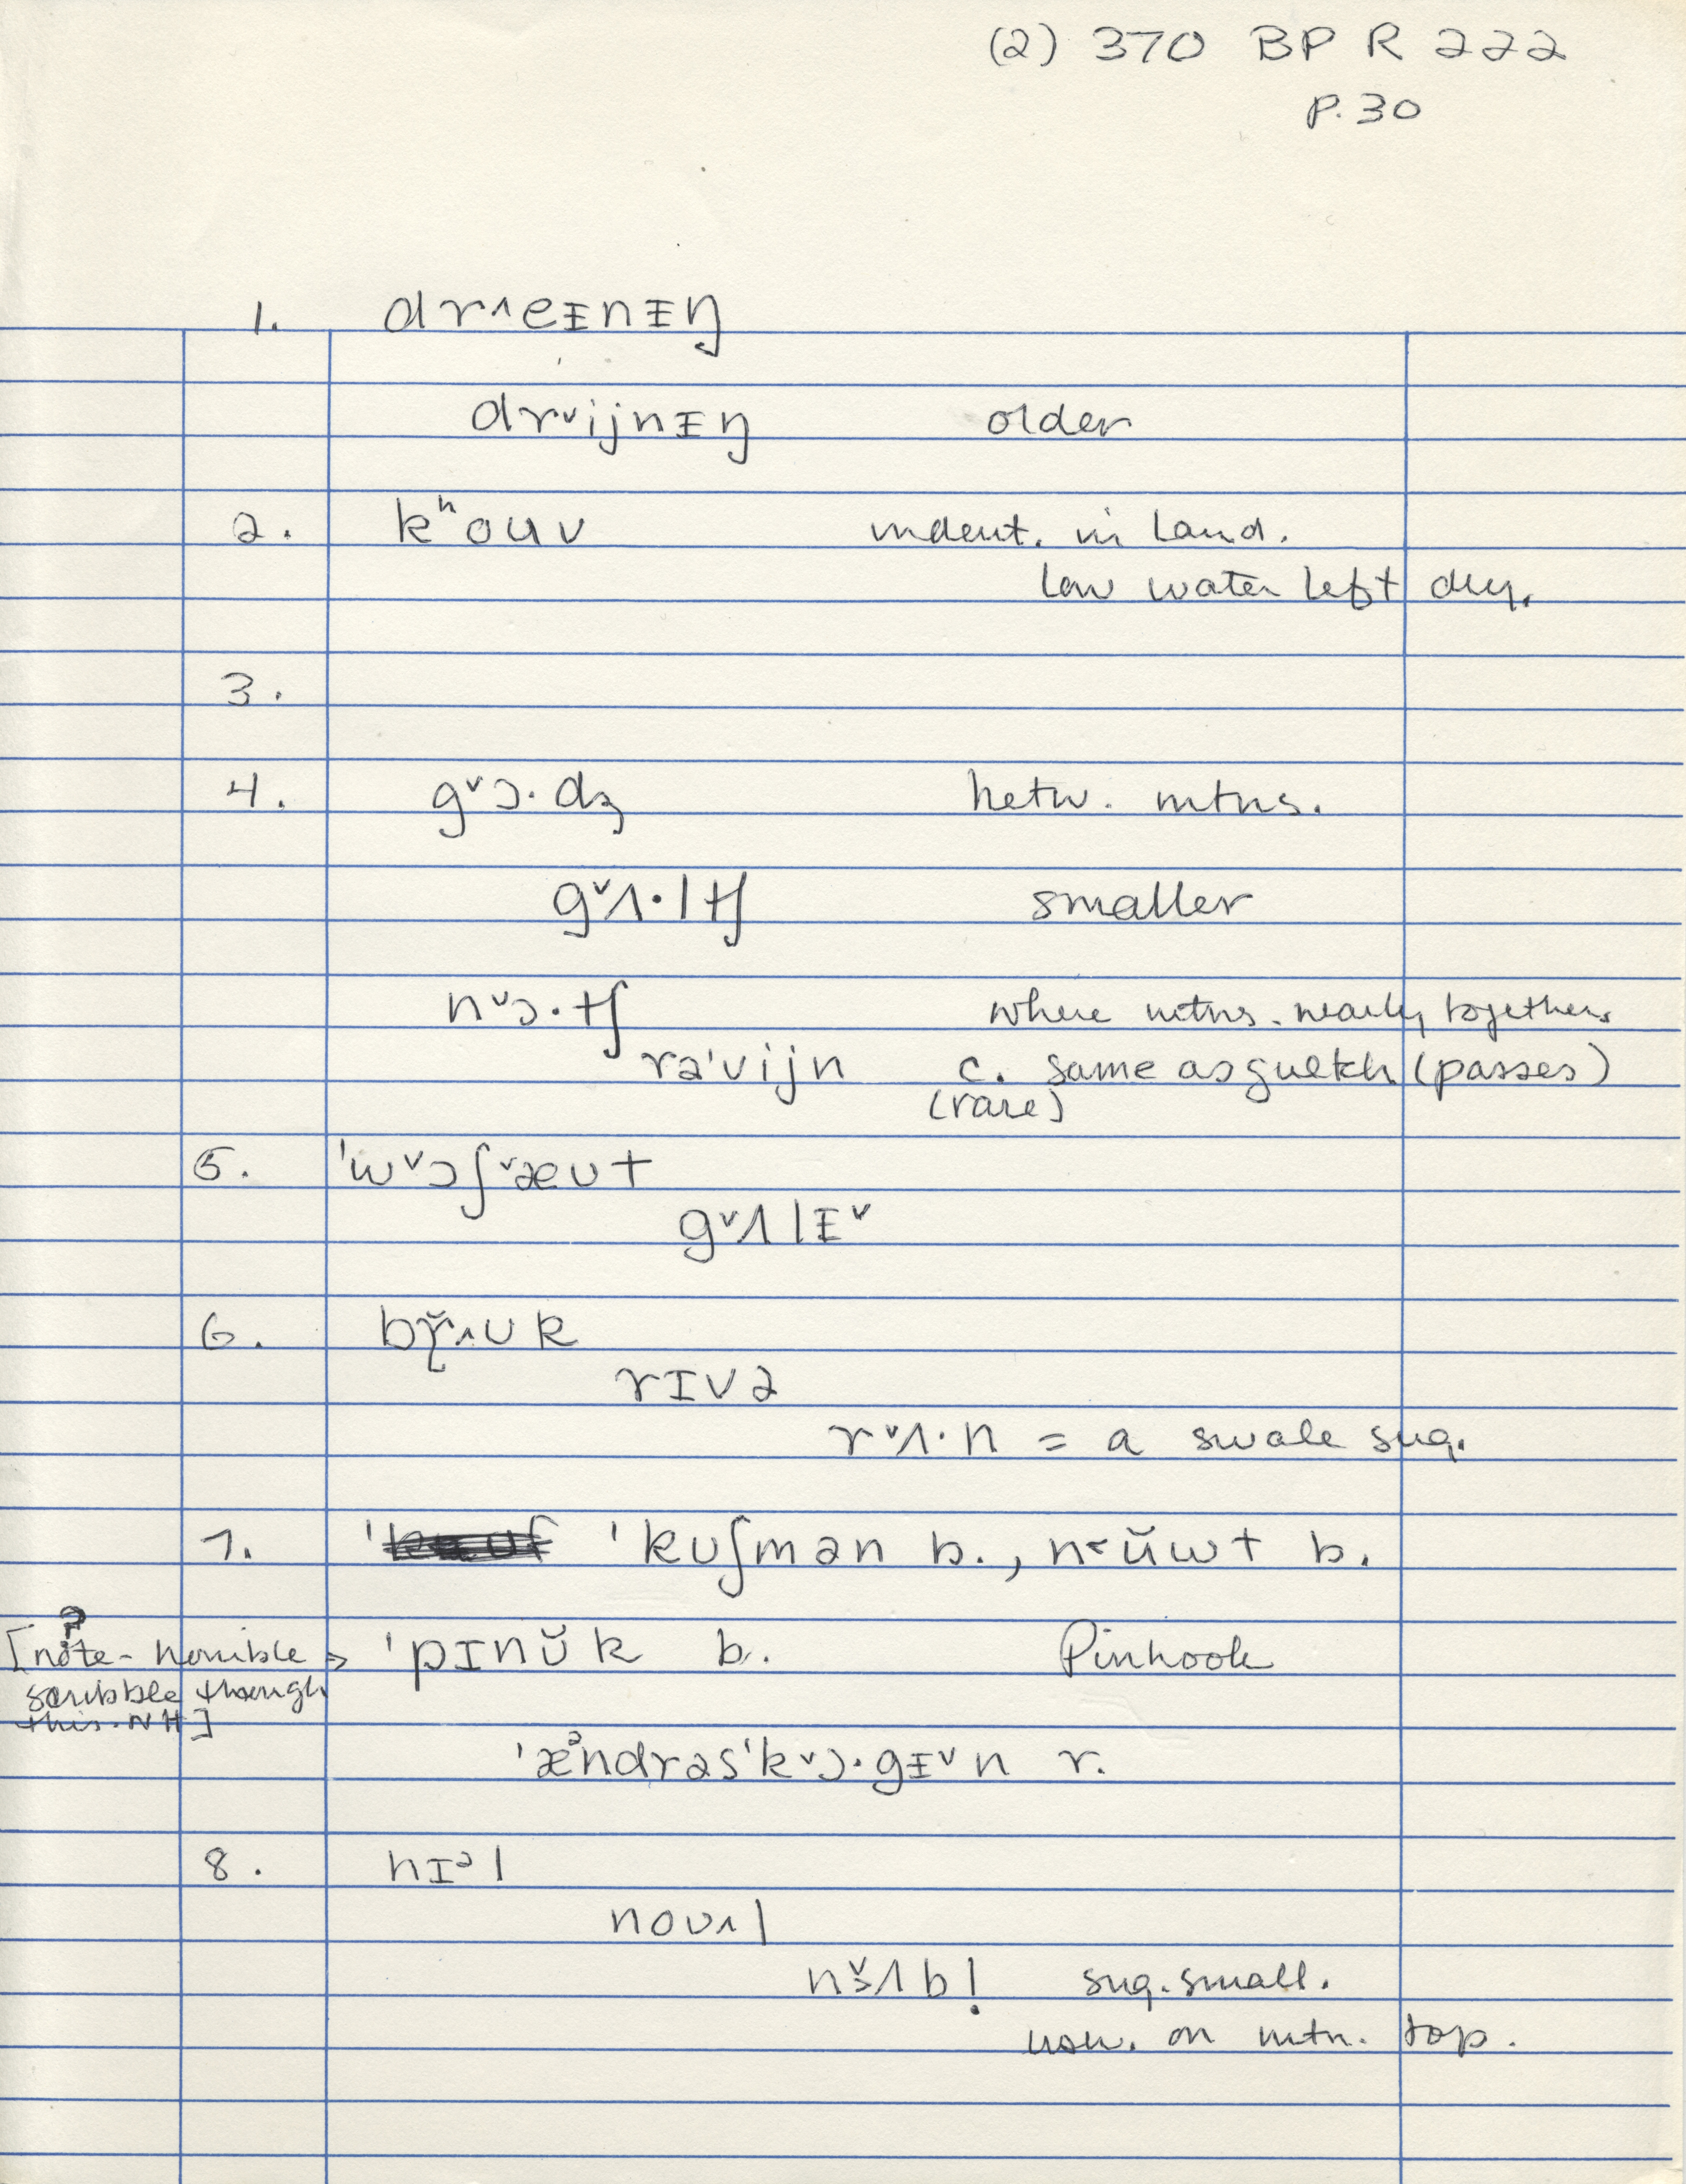 (2) 370 BP R 222
p. 30
1. drʌeᵻnᵻŋ
drᵛijnᵻŋ older
2. kʰouv indent. in land.
low water left dry.
3.
4. gᵛɔ·dʒ betw. mtns.
gᵛʌ·ltʃ smaller
nᵛɔ·tʃ where mtns. nearly together.
rə'vijn c. same as gultch (passes)
(rare)
5. 'wᵛɔʃᵛæʊt
gᵛʌlᵻᵛ
6. bř̥ʌʊk
rɪvə
rᵛʌ·n = a swale sug.
7. 'kʊʃmən b., n˂ŭwt b.
[note - horrible → 'pɪnŭk b. Pinhook
scribble though
this. NH]
'æᵊndrəs'kᵛɔ·gᵻᵛn r.
8. hɪᵊl
noʊʌl
nɔ̌ʌbl̩ sug. small.
usu. on mtn. top.